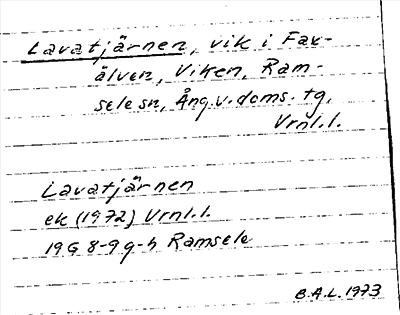 Lavatjärnen, vik i Fax-
älven, Viken, Ram-
sele sn, Ång.v.doms. tg.
Vrnl.l.
Lavatjärnen
ek (1972) Vrnl.l.
19G 8-9 g-h Ramsele
B.A.L. 1973